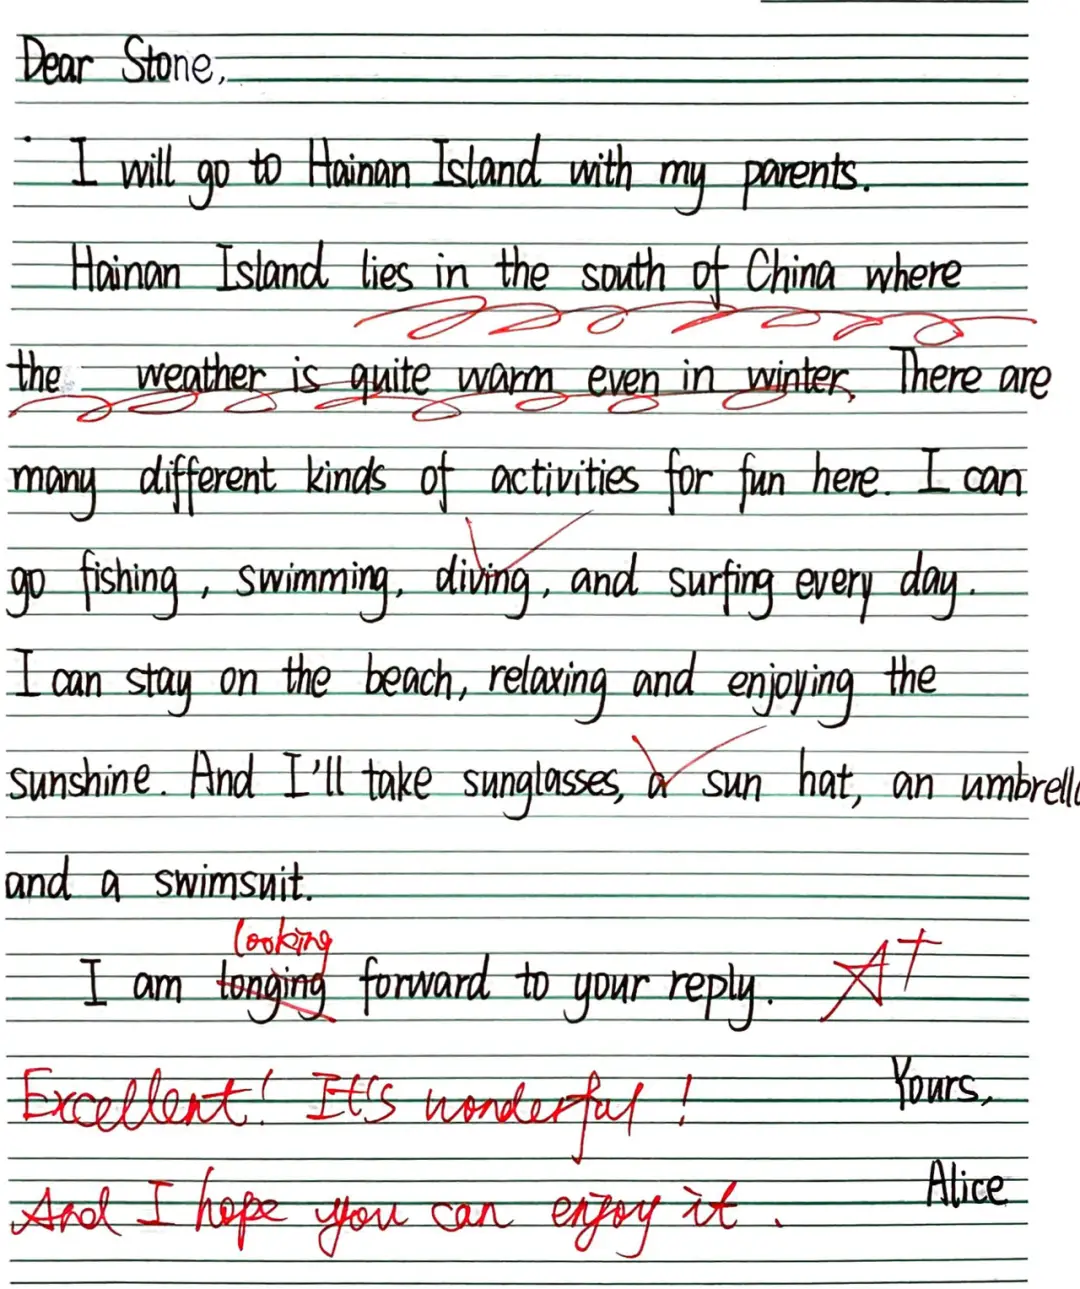 Dear Stone,
I will go to Hainan Island with my parents.
Hainan Island lies in the south of China where
the weather is quite warm even in winter. There are
many different kinds of activities for fun here. I can
go fishing, swimming, diving, and surfing every day.
I can stay on the beach, relaxing and enjoying the
sunshine. And I'll take sunglasses, a sun hat, an umbrella
and a swimsuit.
looking
I am longing forward to your reply. A+
Excellent! It's wonderful! Yours,
And I hope you can enjoy it. Alice